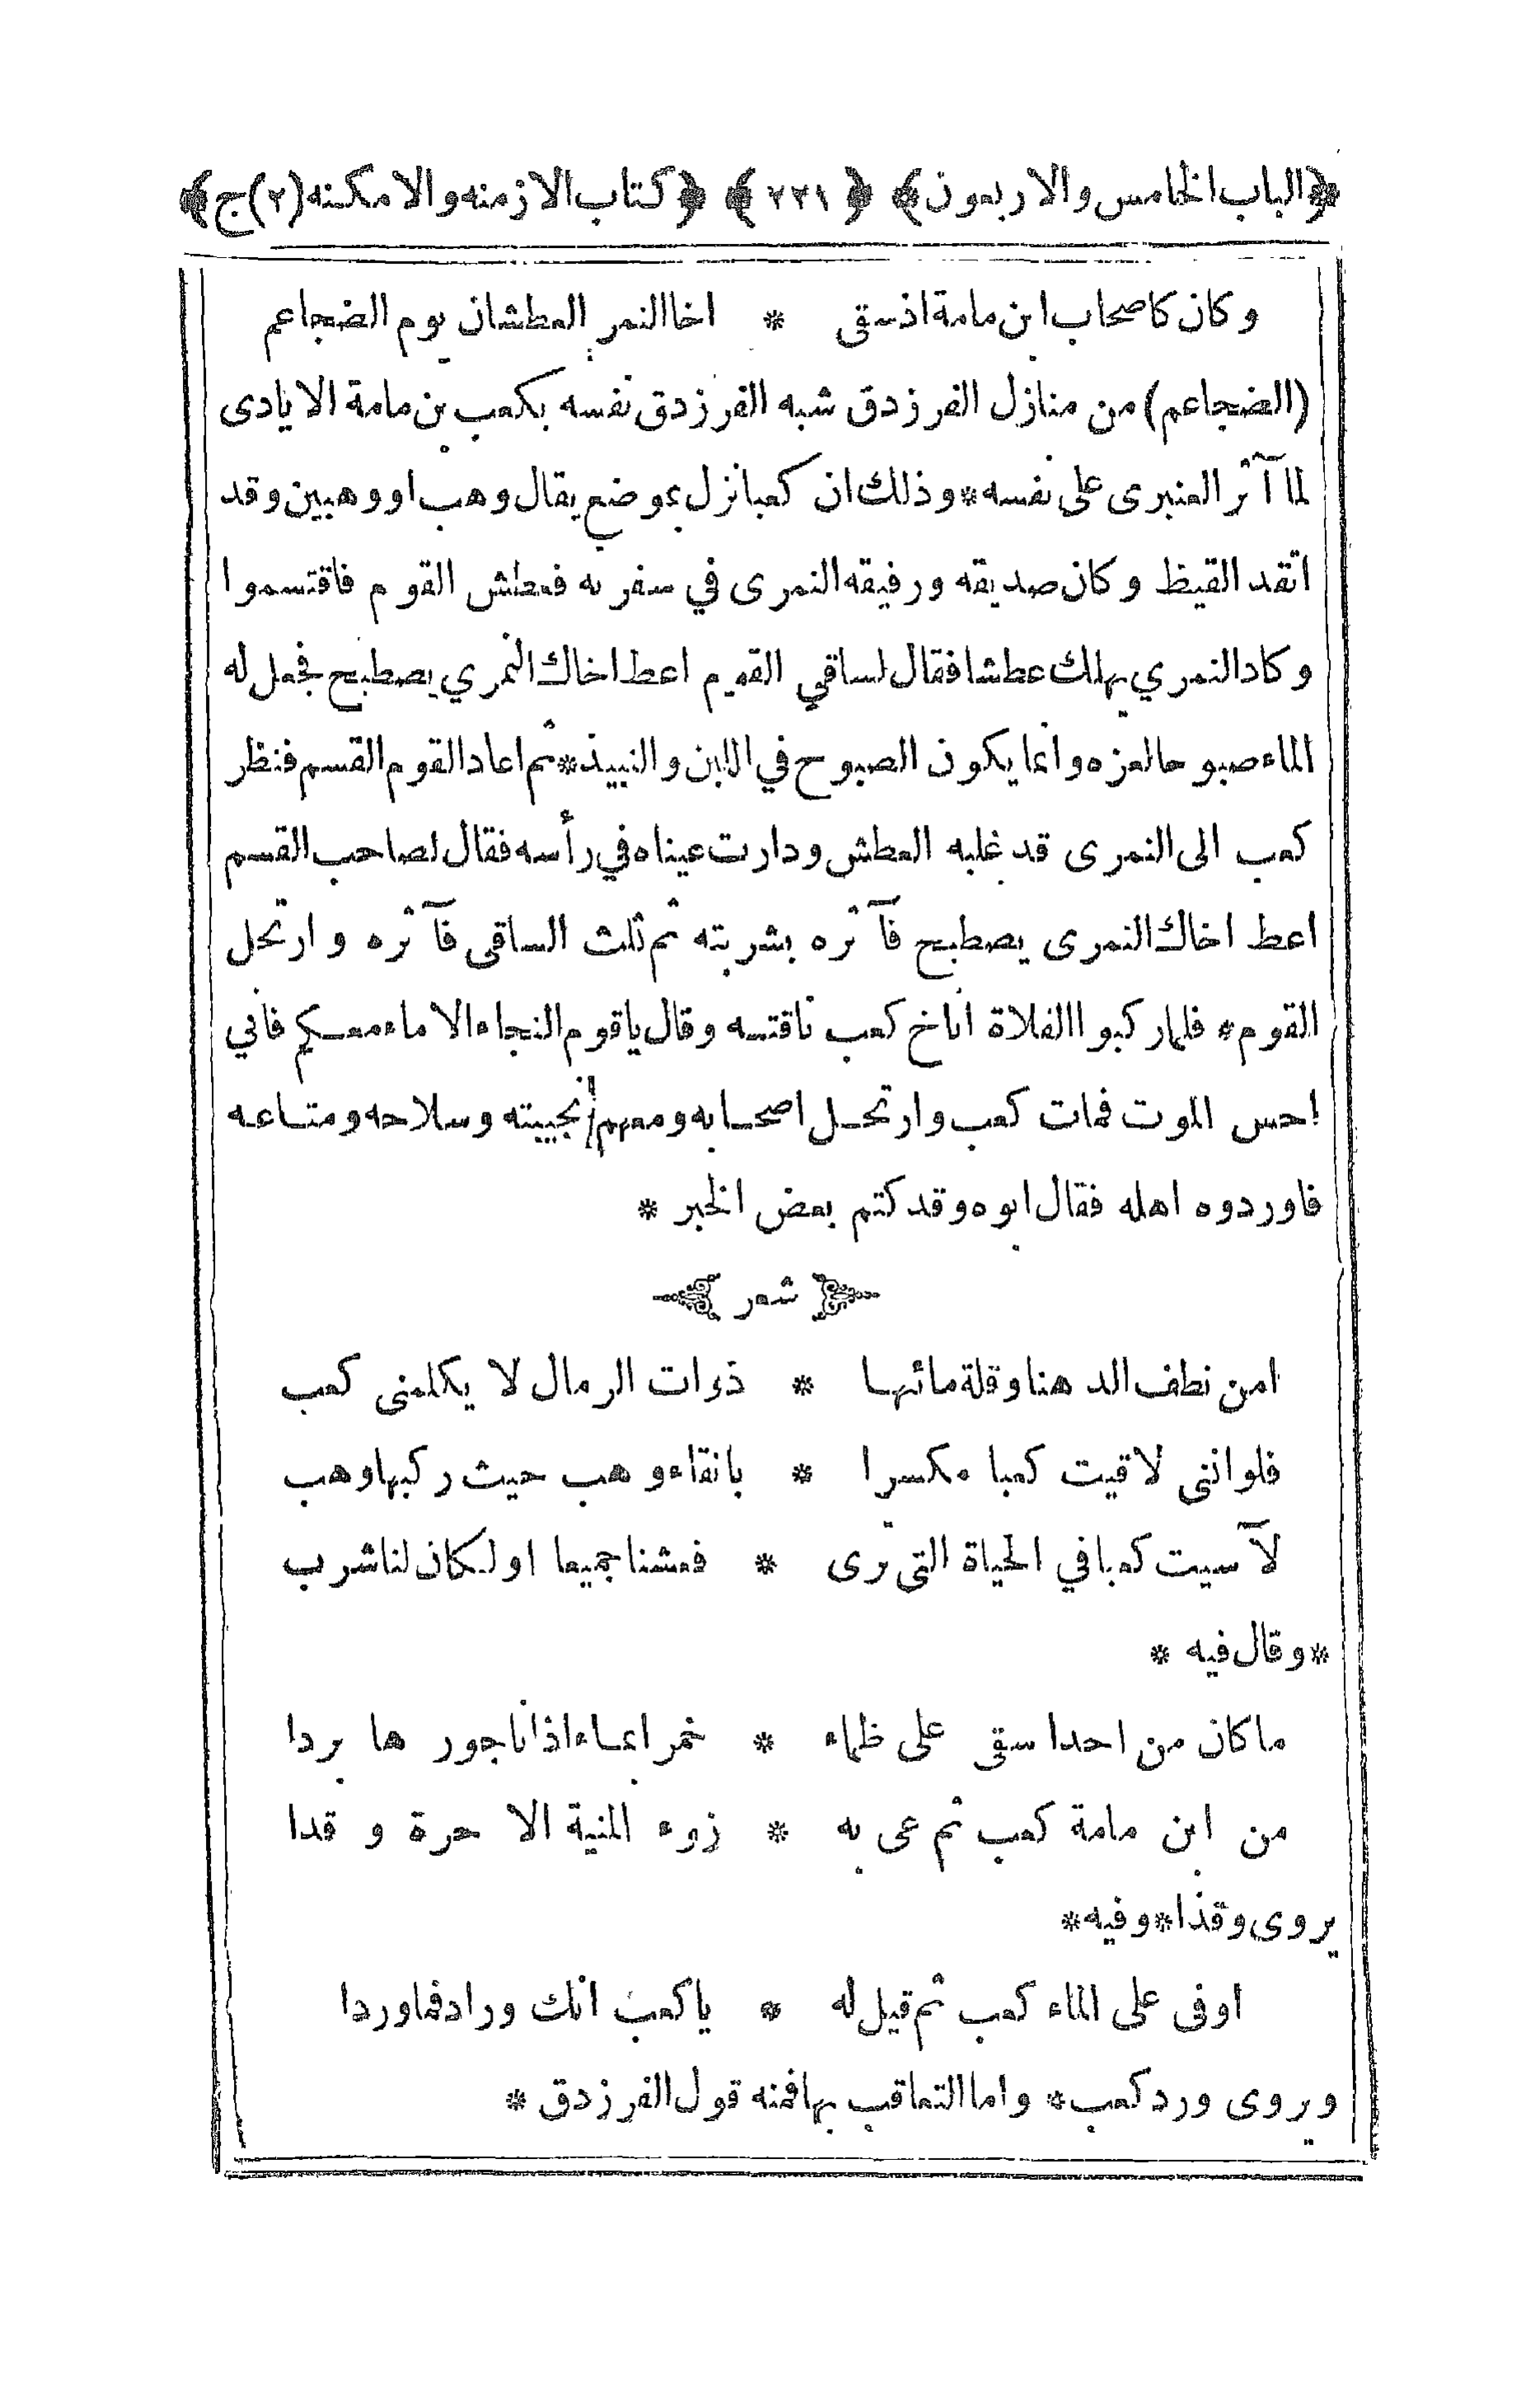 ﴿الباب الخامس والاربعون﴾ ﴿٢٢١﴾ ﴿كتاب الازمنه والامكنه (٢) ج﴾
وكان كاصحاب ابن مامة اذ سقى * اخا النمر العطشان يوم الضجاعم
(الضجاعم) من منازل الفرزدق شبه الفرزدق نفسه بكعب بن مامة الايادى
لما آثر العنبرى على نفسه * وذلك ان كعبا نزل بموضع يقال وهب او وهبين وقد
اتقد القيظ وكان صديقه ورفيقه النمرى في سفر به فعطش القوم فاقتسموا
وكاد النمري يهلك عطشا فقال لساقي القوم اعط اخاك النمري يصطبح فجعل له
الماء صبوحا لعزه وانما يكون الصبوح في اللبن والنبيذ * ثم اعاد القوم القسم فنظر
كعب الى النمرى قد غلبه العطش ودارت عيناه في رأسه فقال لصاحب القسم
اعط اخاك النمرى يصطبح فآثره بشربته ثم ثلث الساقى فآثره وارتحل
القوم * فلما ركبوا الفلاة اناخ كعب ناقتسه وقال يا قوم النجاء الا ماء معكم فاني
احس الموت فمات كعب وارتحل اصحابه ومعهم نجيبته وسلاحه ومتاعه
فاوردوه اهله فقال ابوه وقد كتم بعض الخبر *
﴿ شعر ﴾
امن نطف الدهنا وقلة مائها * ذوات الرمال لا يكلمنى كعب
فلو اننى لاقيت كعبا مكسرا * بانقاء وهب حيث ركبها وهب
لآسيت كعبا في الحياة التى ترى * فعشنا جميعا او لكان لنا شرب
* وقال فيه *
ما كان من احدا سقى على ظماء * خمرا بماء اذا ناجورها بردا
من ابن مامة كعب ثم عى به * زوء المنية الا حرة وقدا
يروى وقذا * وفيه *
اوفى على الماء كعب ثم قيل له * يا كعب انك وراد فما وردا
ويروى ورد كعب * واما التعاقب بها فمنه قول الفرزدق *